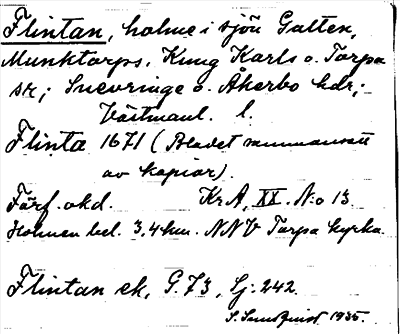 Flintan, holme i sjön Gatten,
Munktorps, Kung Karls o. Torpa
sk; Snevringe o. Åkerbo hdr;
Västmanl. l.
Flinta 1671 (Bladet sammansatt
av kopior).
Förf. okd. KrA, XX. N:o 13
Holmen bel. 3,4 km. NNV Torpa kyrka.
Flintan ek, G.73, Sj. 242.
S. Sundquist 1935.